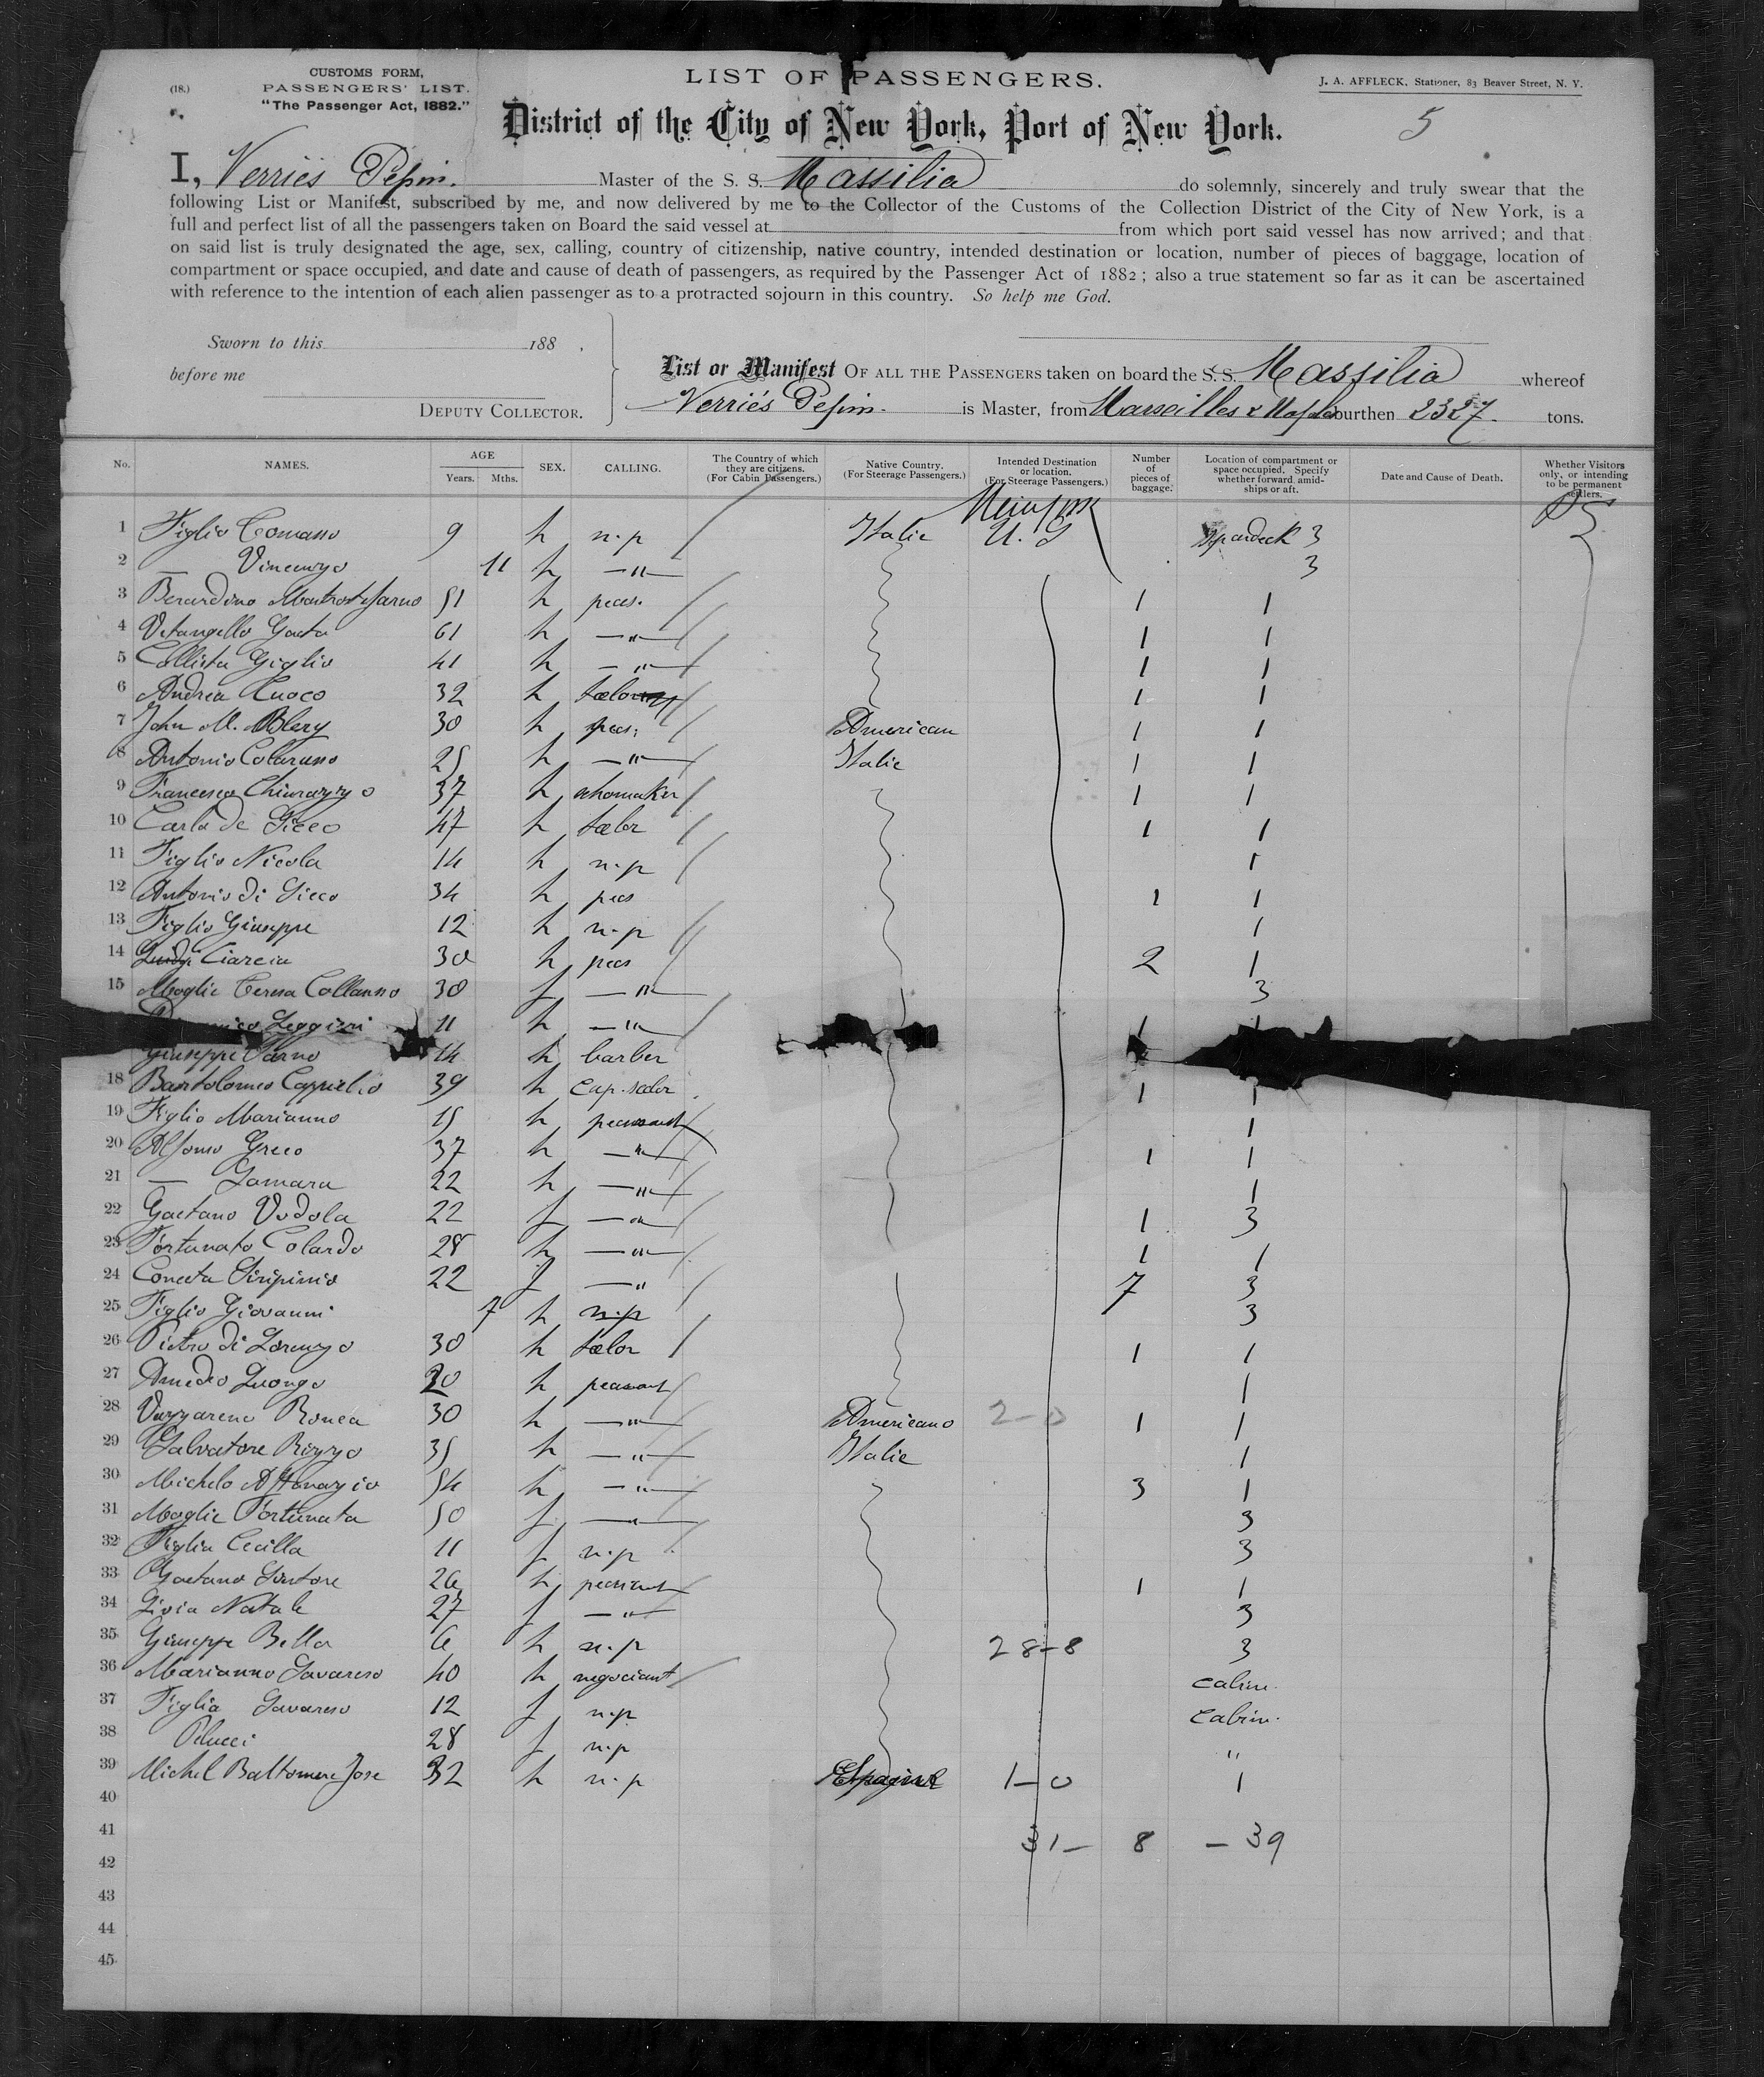 (18.)
CUSTOMS FORM,
PASSENGERS' LIST.
"The Passenger Act, 1882."
LIST OF PASSENGERS.
J. A. AFFLECK, Stationer, 83 Beaver Street, N. Y.
District of the City of New York, Port of New York.
5
I, Verriés Pepin. Master of the S. S. Massilia do solemnly, sincerely and truly swear that the
following List or Manifest, subscribed by me, and now delivered by me to the Collector of the Customs of the Collection District of the City of New York, is a
full and perfect list of all the passengers taken on Board the said vessel at from which port said vessel has now arrived; and that
on said list is truly designated the age, sex, calling, country of citizenship, native country, intended destination or location, number of pieces of baggage, location of
compartment or space occupied, and date and cause of death of passengers, as required by the Passenger Act of 1882; also a true statement so far as it can be ascertained
with reference to the intention of each alien passenger as to a protracted sojourn in this country. So help me God.
Sworn to this 188 .
before me
DEPUTY COLLECTOR.
List or Manifest OF ALL THE PASSENGERS taken on board the S. S. Massilia whereof
Verriés Pepin. is Master, from Marseilles & Naples burthen 2327 tons.
No. NAMES. AGE Years. Mths. SEX. CALLING. The Country of which they are citizens. (For Cabin Passengers.) Native Country. (For Steerage Passengers.) Intended Destination or location. (For Steerage Passengers.) Number of pieces of baggage. Location of compartment or space occupied. Specify whether forward, amidships or aft. Date and Cause of Death. Whether Visitors only, or intending to be permanent settlers.
1 Figlio Tomasso 9 h n.p Italie U. S 3
2 — Vincenzo 11 h —"— 3
3 Berardino 51 h peas. 1 1
4 Vitangello Gaeta 61 h —"— 1 1
5 Callista Giglio 41 h —"— 1 1
6 Andrea Cuoco 32 h tælor 1 1
7 John M. 30 h peas. American 1 1
8 Antonio Colarusso 25 h —"— Italie 1 1
9 Francesco Chiurazzo 37 h shomaker 1 1
10 Carlo de Sicco 47 h tælor 1 1
11 Figlio Nicola 14 h n.p 1
12 Antonio di Sicco 34 h peas 1 1
13 Figlio Giuseppe 12 h n.p 1
14 Luidgi Ciarcia 30 h peas 2 1
15 Moglie Teresa Collanno 30 f —"— 3
Leggieri 11 h —"— 1 1
Giuseppe Sarno 14 h barber
18 Bartolomeo 39 h 1 1
19 Figlio Marianno 15 h peasant 1
20 Alfonso Greco 37 h —"— 1 1
21 — Gamara 22 h —"— 1
22 Gaetano Vodola 22 f —"— 1 3
23 Fortunato Colardo 28 h —"— 1 1
24 Conceta 22 f —" 7 3
25 Figlio Giovanni 7 h n.p 3
26 Pietro di Lorenzo 30 h tælor 1 1
27 Amedeo Luongo 20 h peasant 1
28 Vazzareno Ronca 30 h —"— Americano 2-0 1 1
29 Salvatore Rizzo 35 h —"— Italie 1
30 Michele 54 h —"— 3 1
31 Moglie Fortunata 50 f —"— 3
32 Figlia Cecilla 11 f n.p 3
33 Gaetano 26 h peasant 1 1
34 Livia Natale 27 f —"— 3
35 Giuseppe Bella 6 h n.p 28-8 3
36 Marianno Savareso 40 h negociant cabin.
37 Figlia Savareso 12 f n.p cabin.
38 Pelucci 28 f n.p "
39 Michel Baltomere Jose 32 h n.p Espagnol 1-0 1
40
41 31- 8 - 39
42
43
44
45